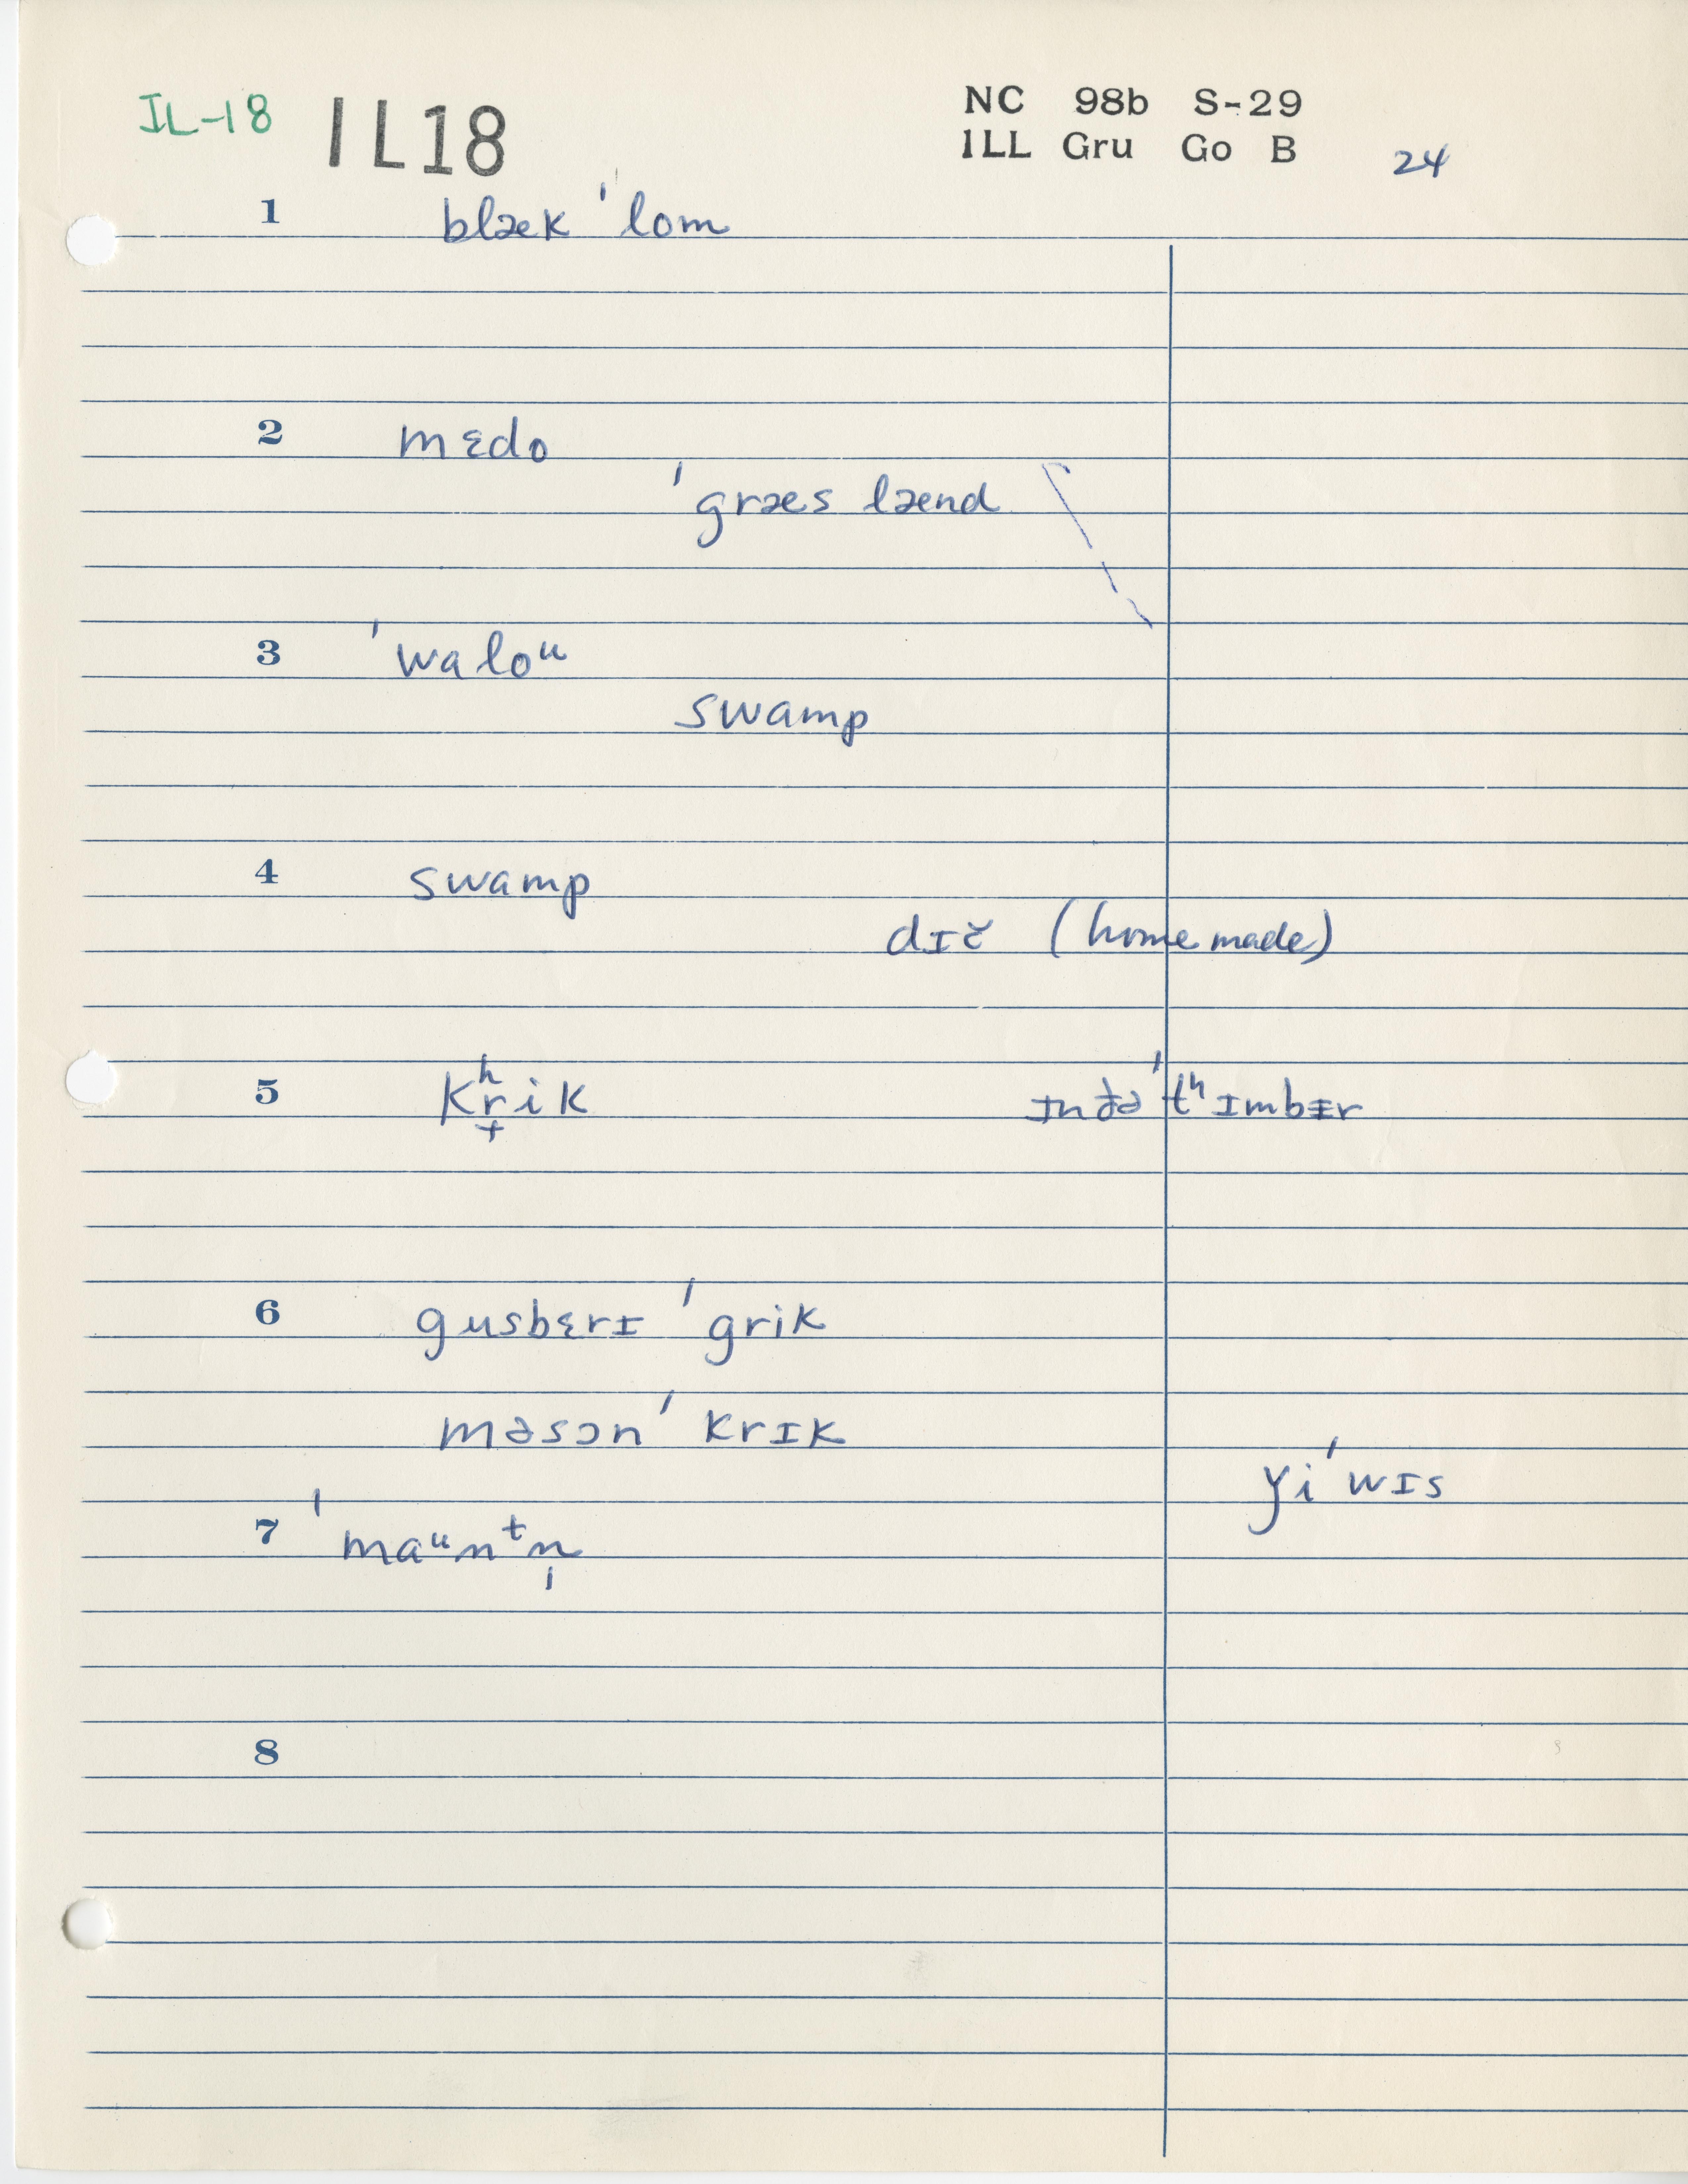 IL-18 IL18 NC 98b S-29
ILL Gru Go B 24
1 blæk ˈlom
2 mɛdo
ˈgræs lænd
3 ˈwaloᵘ
swamp
4 swamp
dɪč (home made)
5 kʰr̟ik ɪnðə ˈtʰɪmbɨr
6 gusbɛrɪ ˈgrik
məsɔn ˈkrɪk
yi ˈwɪs
7 ˈmaᵘnᵗn̩
8